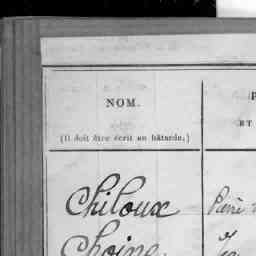 NOM.
ET
(Il doit être écrit en bâtarde.)
Chiloux Pierre
Choine